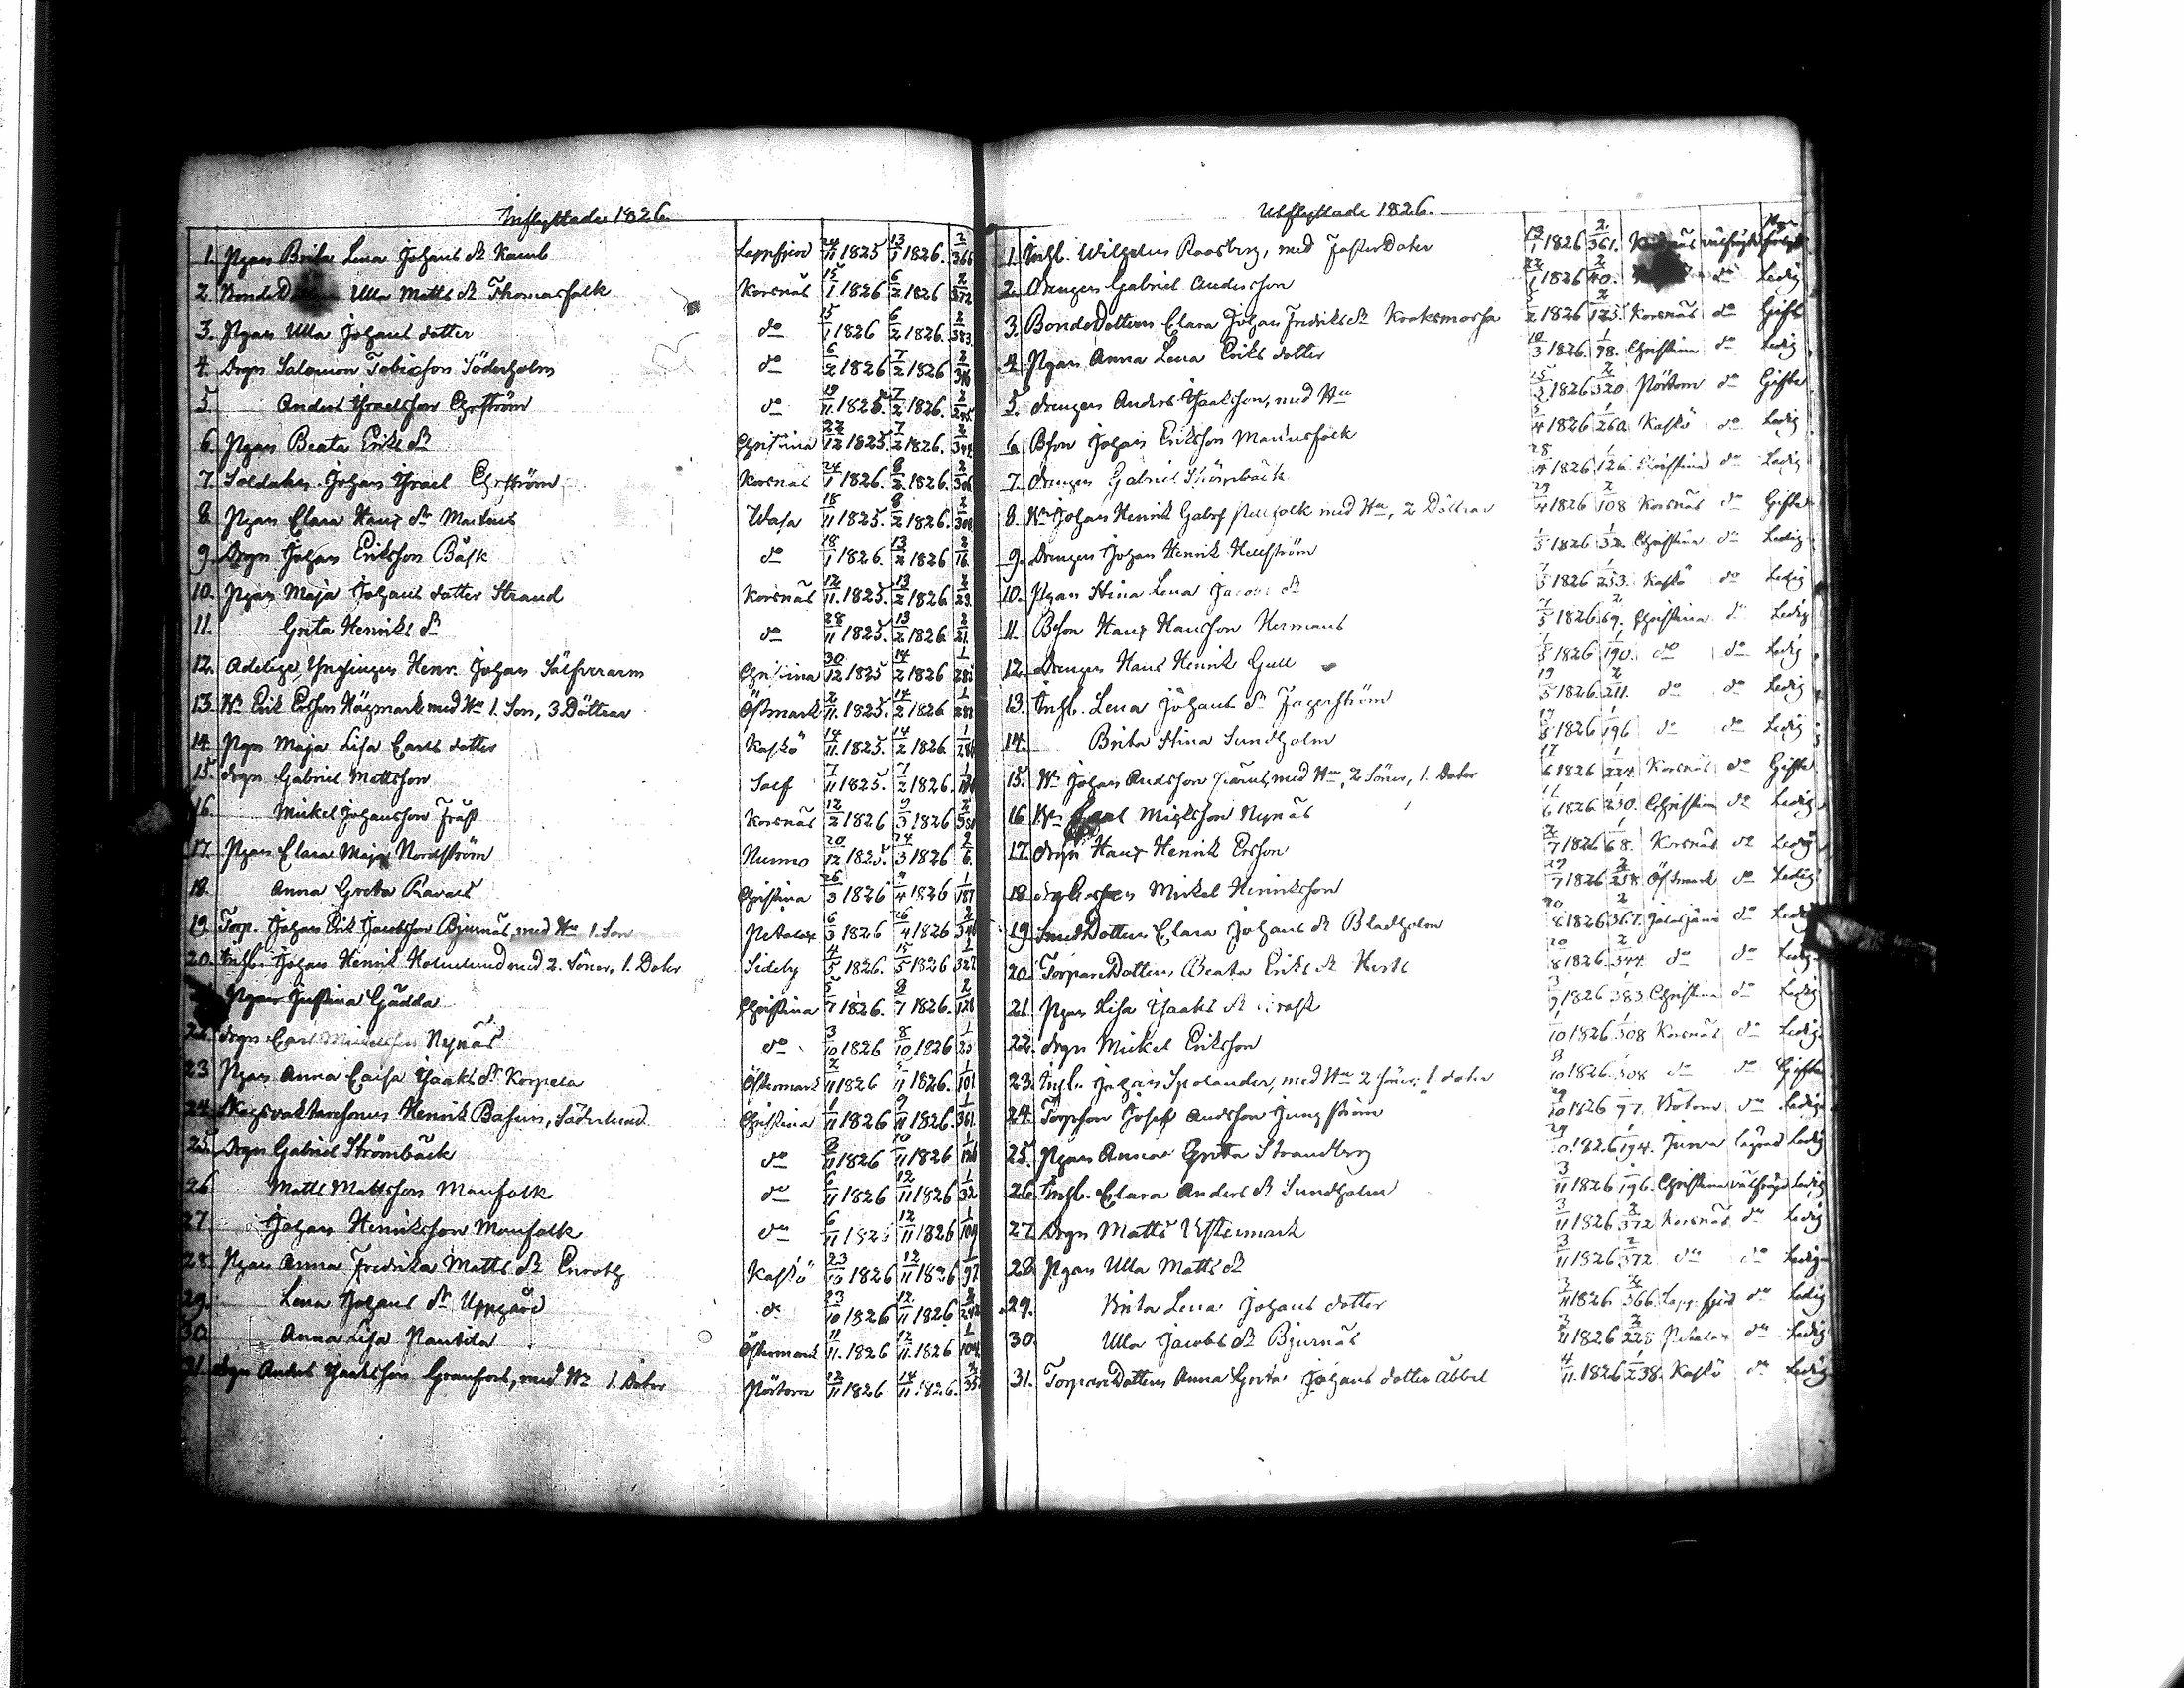 Inflyttade 1826.
1. Pigan Brita Lena Johans dr Kamb Lappfjerd 24/11 1825 13/1 1826. 2/366
2. Bonde Ulla Matts dr Thomasfolk Korsnäs 15/1 1826 6/2 1826 2/372
3. Pigan Ulla Johans dotter do 15/1 1826 6/2 1826. 2/383.
4. Drgn Salomon Tobiasson Söderholm do 6/2 1826 7/2 1826 2/316
5. Anders Israelsson Ehrström do 19/11 1825. 7/2 1826. 2/295
6. Pigan Beata Eriks dr Christina 22/12 1825. 7/2 1826. 2/344
7. Soldaten Johan Israel Ehrström Korsnäs 24/1 1826. 8/2 1826. 2/306
8. Pigan Clara Hans dr Martens Wasa 18/11 1825. 8/2 1826. 2/308
9. Drgn Johan Eriksson Bäsk do 18/1 1826. 13/2 1826 2/16
10. Pigan Maja Johans dotter Strand Korsnäs 12/11 1825. 13/2 1826. 2/23.
11. Greta Henriks dr do 28/11 1825. 13/2 1826. 2/21.
12. Adelige Ynglingen Henr. Johan Silfverarm Christina 30/12 1825 14/2 1826 1/285
13. Nb Erik Ersson Högmark med Hu 1. Son, 3 Döttrar Östmark 2/11 1825. 14/2 1826 1/282
14. Pign Maja Lisa Carls dotter Kaskö 14/11 1825. 14/2 1826. 1/286
15. drgn Gabriel Mattsson Solf 7/11 1825. 7/2 1826. 1/190
16. Mickel Johansson Frast Korsnäs 12/2 1826 9/3 1826 2/381
17. Pigan Clara Maja Nordström Nurmo 20/12 1825. 24/3 1826 2/6.
18. Anna Greta Ravals Christina 26/3 1826 4/4 1826 1/187
19. Torp. Johan Erik Jacobsson Bjurnäs, med Hu 1. Son Petalax 6/3 1826 16/4 1826 2/340
20. Inhs. Johan Henrik Holmlund med 2. Söner, 1. Doter Sideby 4/5 1826. 15/5 1826 1/327
Pigan Justina Gädda Christina 5/7 1826. 8/7 1826. 2/128
22. drgn Carl Mickelsson Nynäs do 3/10 1826 8/10 1826 1/23
23 Pigan Anna Caisa Isaks dr Korpela Östermark 2/11 1826 5/11 1826. 1/101
24. Skogsvaktaresonen Henrik Basun, Söderlund Christina 1/11 1826 9/11 1826. 1/361.
25. Drgn Gabriel Strömbäck do 8/11 1826 10/11 1826 1/126
26 Matts Mattsson Manfolk do 6/11 1826 12/11 1826 1/32
27 Johan Henriksson Manfolk do 6/11 1826 12/11 1826 1/109
28. Pigan Anna Fredrika Matts dr Enroth Kaskö 23/10 1826 12/11 1826 1/97
29. Lena Johans dr Uppgård do 23/10 1826 12/11 1826. 2/242
30. Anna Lisa Mantila Östermark 11/11. 1826 12/11. 1826 1/104
31. drgn Anders Isaksson Granfors, med Hu 1. Doter Pörtom 12/11 1826 14/11. 1826. 2/35
Utflyttade 1826.
1. Inhs. Wilhelm Roosberg, med Fosterdoter 13/1 1826 2/361.
2. Drengen Gabriel Andersson 22/1 1826 2/40. do Ledig
3. BondeDottern Clara Johan Fredriks dr Kroksmossa 5/2 1826 2/125. Korsnäs do Gift
4. Pigan Anna Lena Eriks dotter 10/3 1826. 1/98. Christina do Ledig
5. Drengen Anders Isaksson, med Hu 15/3 1826 2/320 Pörtom do Gifte
6. Bson Johan Eriksson Mannsfolk 5/4 1826 1/260. Kaskö do Ledig
7. Drengen Gabriel Strömbäck 28/4 1826 1/126 Christina do Ledig
8. Nb Johan Henrik Gabrs med Hu, 2 Döttrar 29/4 1826 2/108 Korsnäs do Gifte
9. Drengen Johan Henrik Hellström 1/5 1826 1/32. Christina do Ledig
10. Pigan Stina Lena Jacobs dr 7/5 1826 1/253. Kaskö do Ledig
11. Bson Hans Hansson Hermans 7/5 1826 2/69. Christina do Ledig
12. Drengen Hans Henrik Gull 7/5 1826 1/190. do do Ledig
13. Inhs. Lena Johans dr Jagerström 19/5 1826. 2/211. do do Ledig
14. Brita Stina Sundholm 1826 1/196 do do Ledig
15. Nb Johan Andsson med Hu, 2 Söner, 1. Doter 17/6 1826 1/224. Korsnäs do Gifte
16 Carl Michlsson Nynäs 11/6 1826 1/230. Christina do Ledig
17. drgn Hans Henrik Ersson 2/7 1826 1/68. Korsnäs do Ledig
18 Mickel Henriksson 29/7 1826 2/218. Östmark do Ledig
19. SmedDottern Clara Johans dr Bladholm 20/8 1826 2/367. do Ledig
20. TorpareDottern Beata Eriks dr 20/8 1826 2/344. do do Ledig
21. Pigan Lisa Isaks dr 3/9 1826 1/383 Christina do Ledig
22. drgn Mickel Eriksson 1/10 1826 1/308 Korsnäs do Ledig
23. Inhs. Johan Spolander, med Hu 2 Söner, 1 doter 8/10 1826. 1/308 do do Gifte
24. Torpson Josef Andsson Ljungström 29/10 1826 1/97. Bötom do Ledig
25. Pigan Anna Greta Strandberg 29/10 1826 1/194. Jurva Ledig
26. Inhs. Clara Anders dr Sundholm 3/11 1826 1/196. Christina välfrägd Ledig
27. Drgn Matts Westermark 3/11 1826 2/372 Korsnäs do Ledig
28. Pigan Ulla Matts dr 3/11 1826 2/372 do do Ledig
29. Brita Lena Johans dotter 3/11 1826. 2/366. Lappfjerd do Ledig
30. Ulla Jacobs dr Bjurnäs 3/11 1826 2/228. Petalax do Ledig
31. TorpareDottern Anna Greta Johans dotter Abbel 4/11. 1826 1/238. Kaskö do Ledig